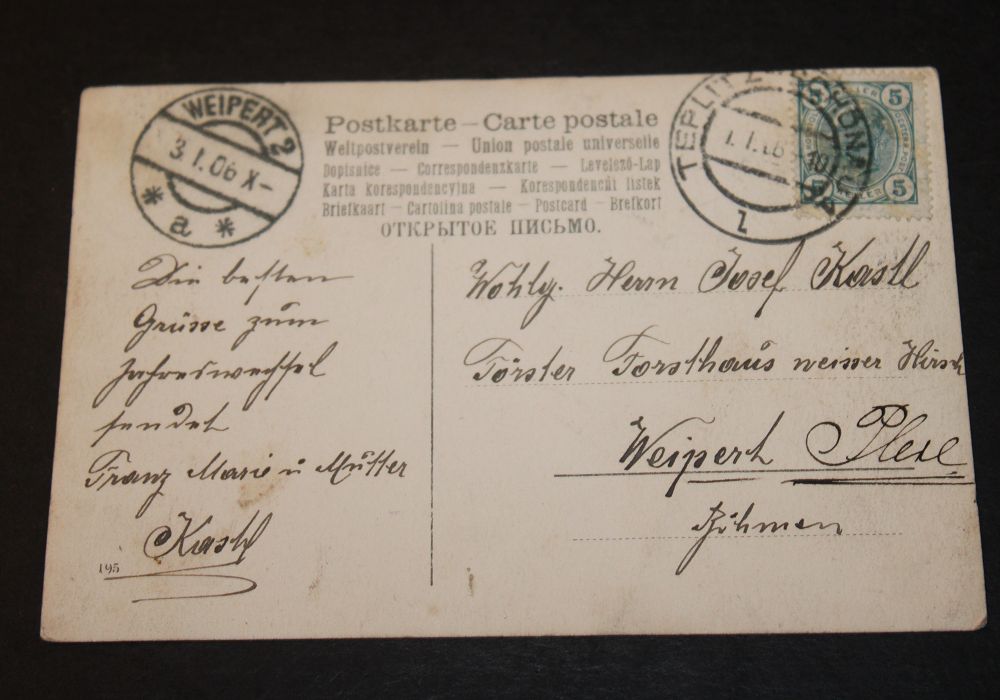 WEIPERT 2
3.1.06 X-
* a *
Postkarte – Carte postale
Weltpostverein – Union postale universelle
Dopisnice – Correspondenzkarte – Levelező-Lap
Karta korespondencyjna – Korespondenchi listek
Briefkaart – Cartolina postale – Postcard – Brefkort
ОТКРЫТОЕ ПИСЬМО.
TEPLITZ-SCHÖNAU
1
5 5
5 5
Die besten
Grüsse zum
Jahreswechsel
sendet
Franz Marie u Mutter
Kastl
195
Wohlg. Herrn Josef Kastl
Förster Forsthaus weisser Hirsch
Weipert
Böhmen